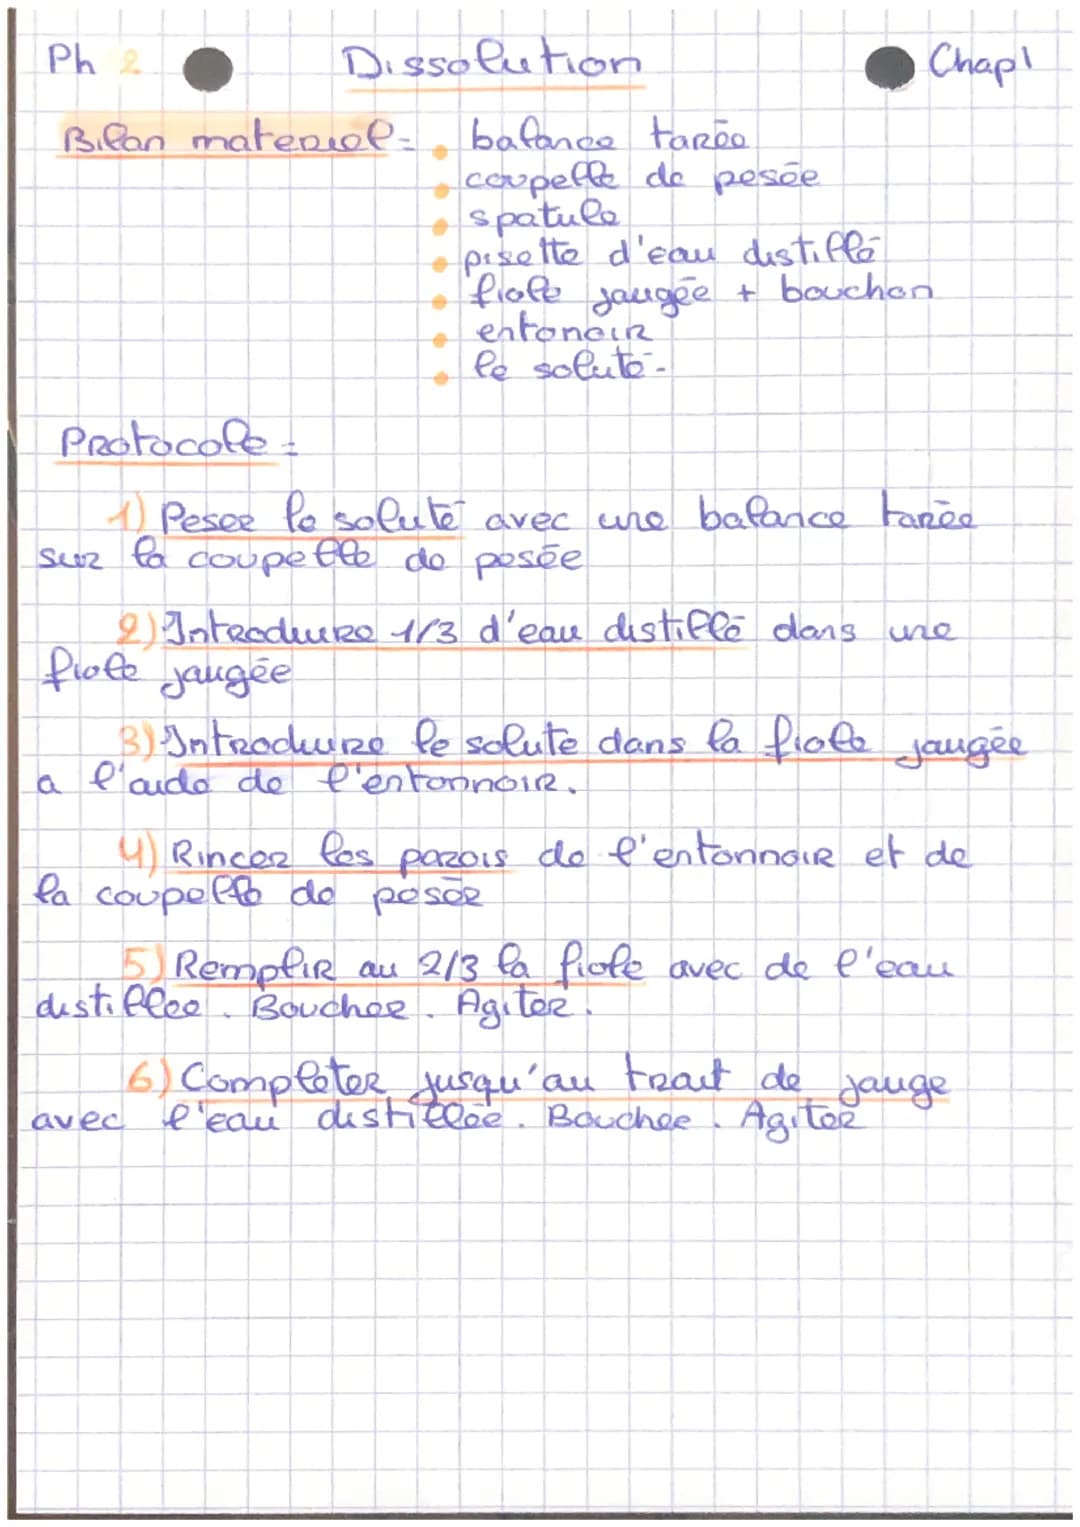 Ph 2 Dissolution Chap 1
Bilan materiel = balance tarée
coupelle de pesée
spatule
pisette d'eau distillé
fiole jaugée + bouchon
entonoir
le soluté.
Protocole =
1) Peser le soluté avec une balance tarée
sur la coupelle de pesée
2) Introduire 1/3 d'eau distillé dans une
fiole jaugée
3) Introduire le solute dans la fiole jaugée
a l'aide de l'entonnoir.
4) Rincer les parois de l'entonnoir et de
la coupelle de pesée
5) Remplir au 2/3 la fiole avec de l'eau
distillee. Boucher. Agiter.
6) Completer jusqu'au trait de jauge
avec l'eau distillée. Boucher. Agiter